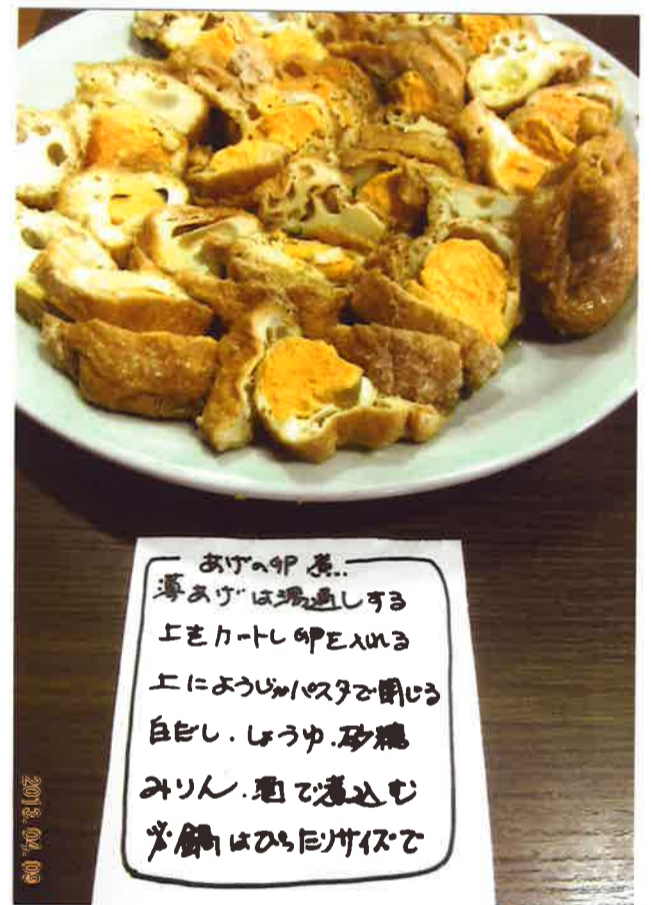 あげの卵煮
薄あげは湯通しする
上をカットし卵を入れる
上にようじかパスタで閉じる
白だし.しょうゆ.砂糖
みりん.酒で煮込む
※鍋はぴったりサイズで
2013.04.09